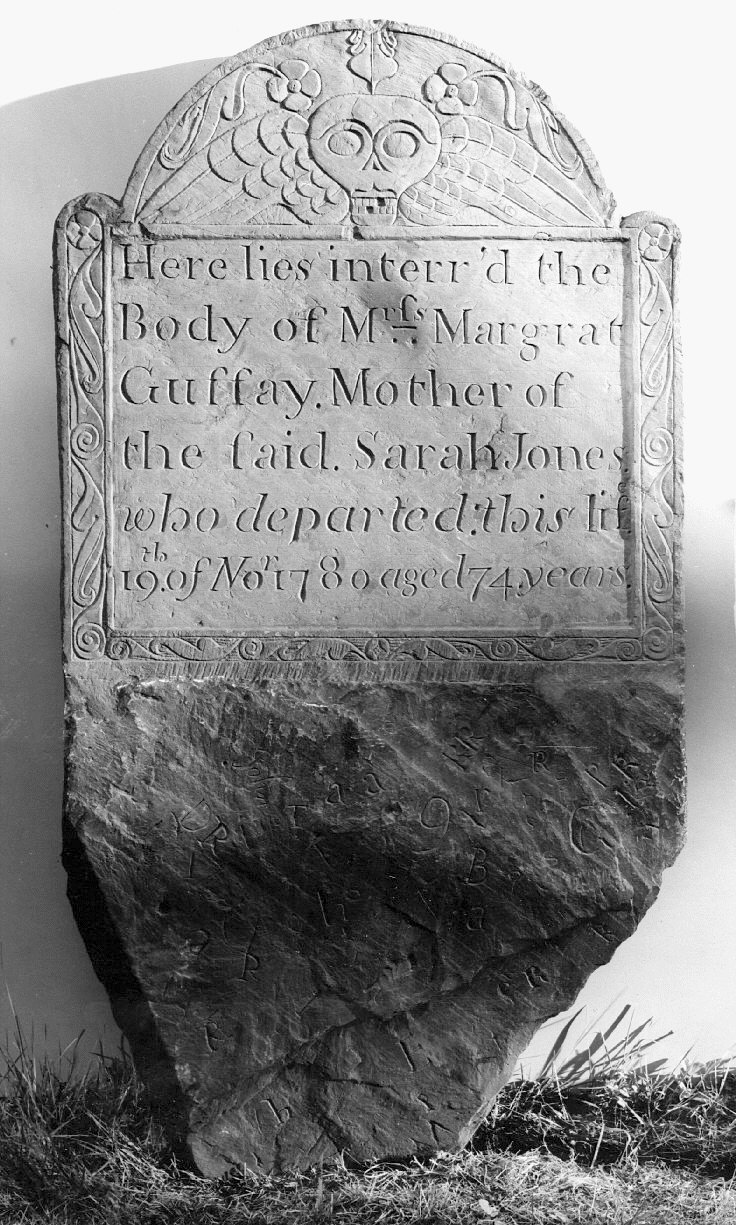 Here lies interr'd the
Body of Mrſs: Margrat
Guffay. Mother of
the ſaid. Sarah Jones.
who departed. this life.
19th. of Nor 1780 aged 74. years.